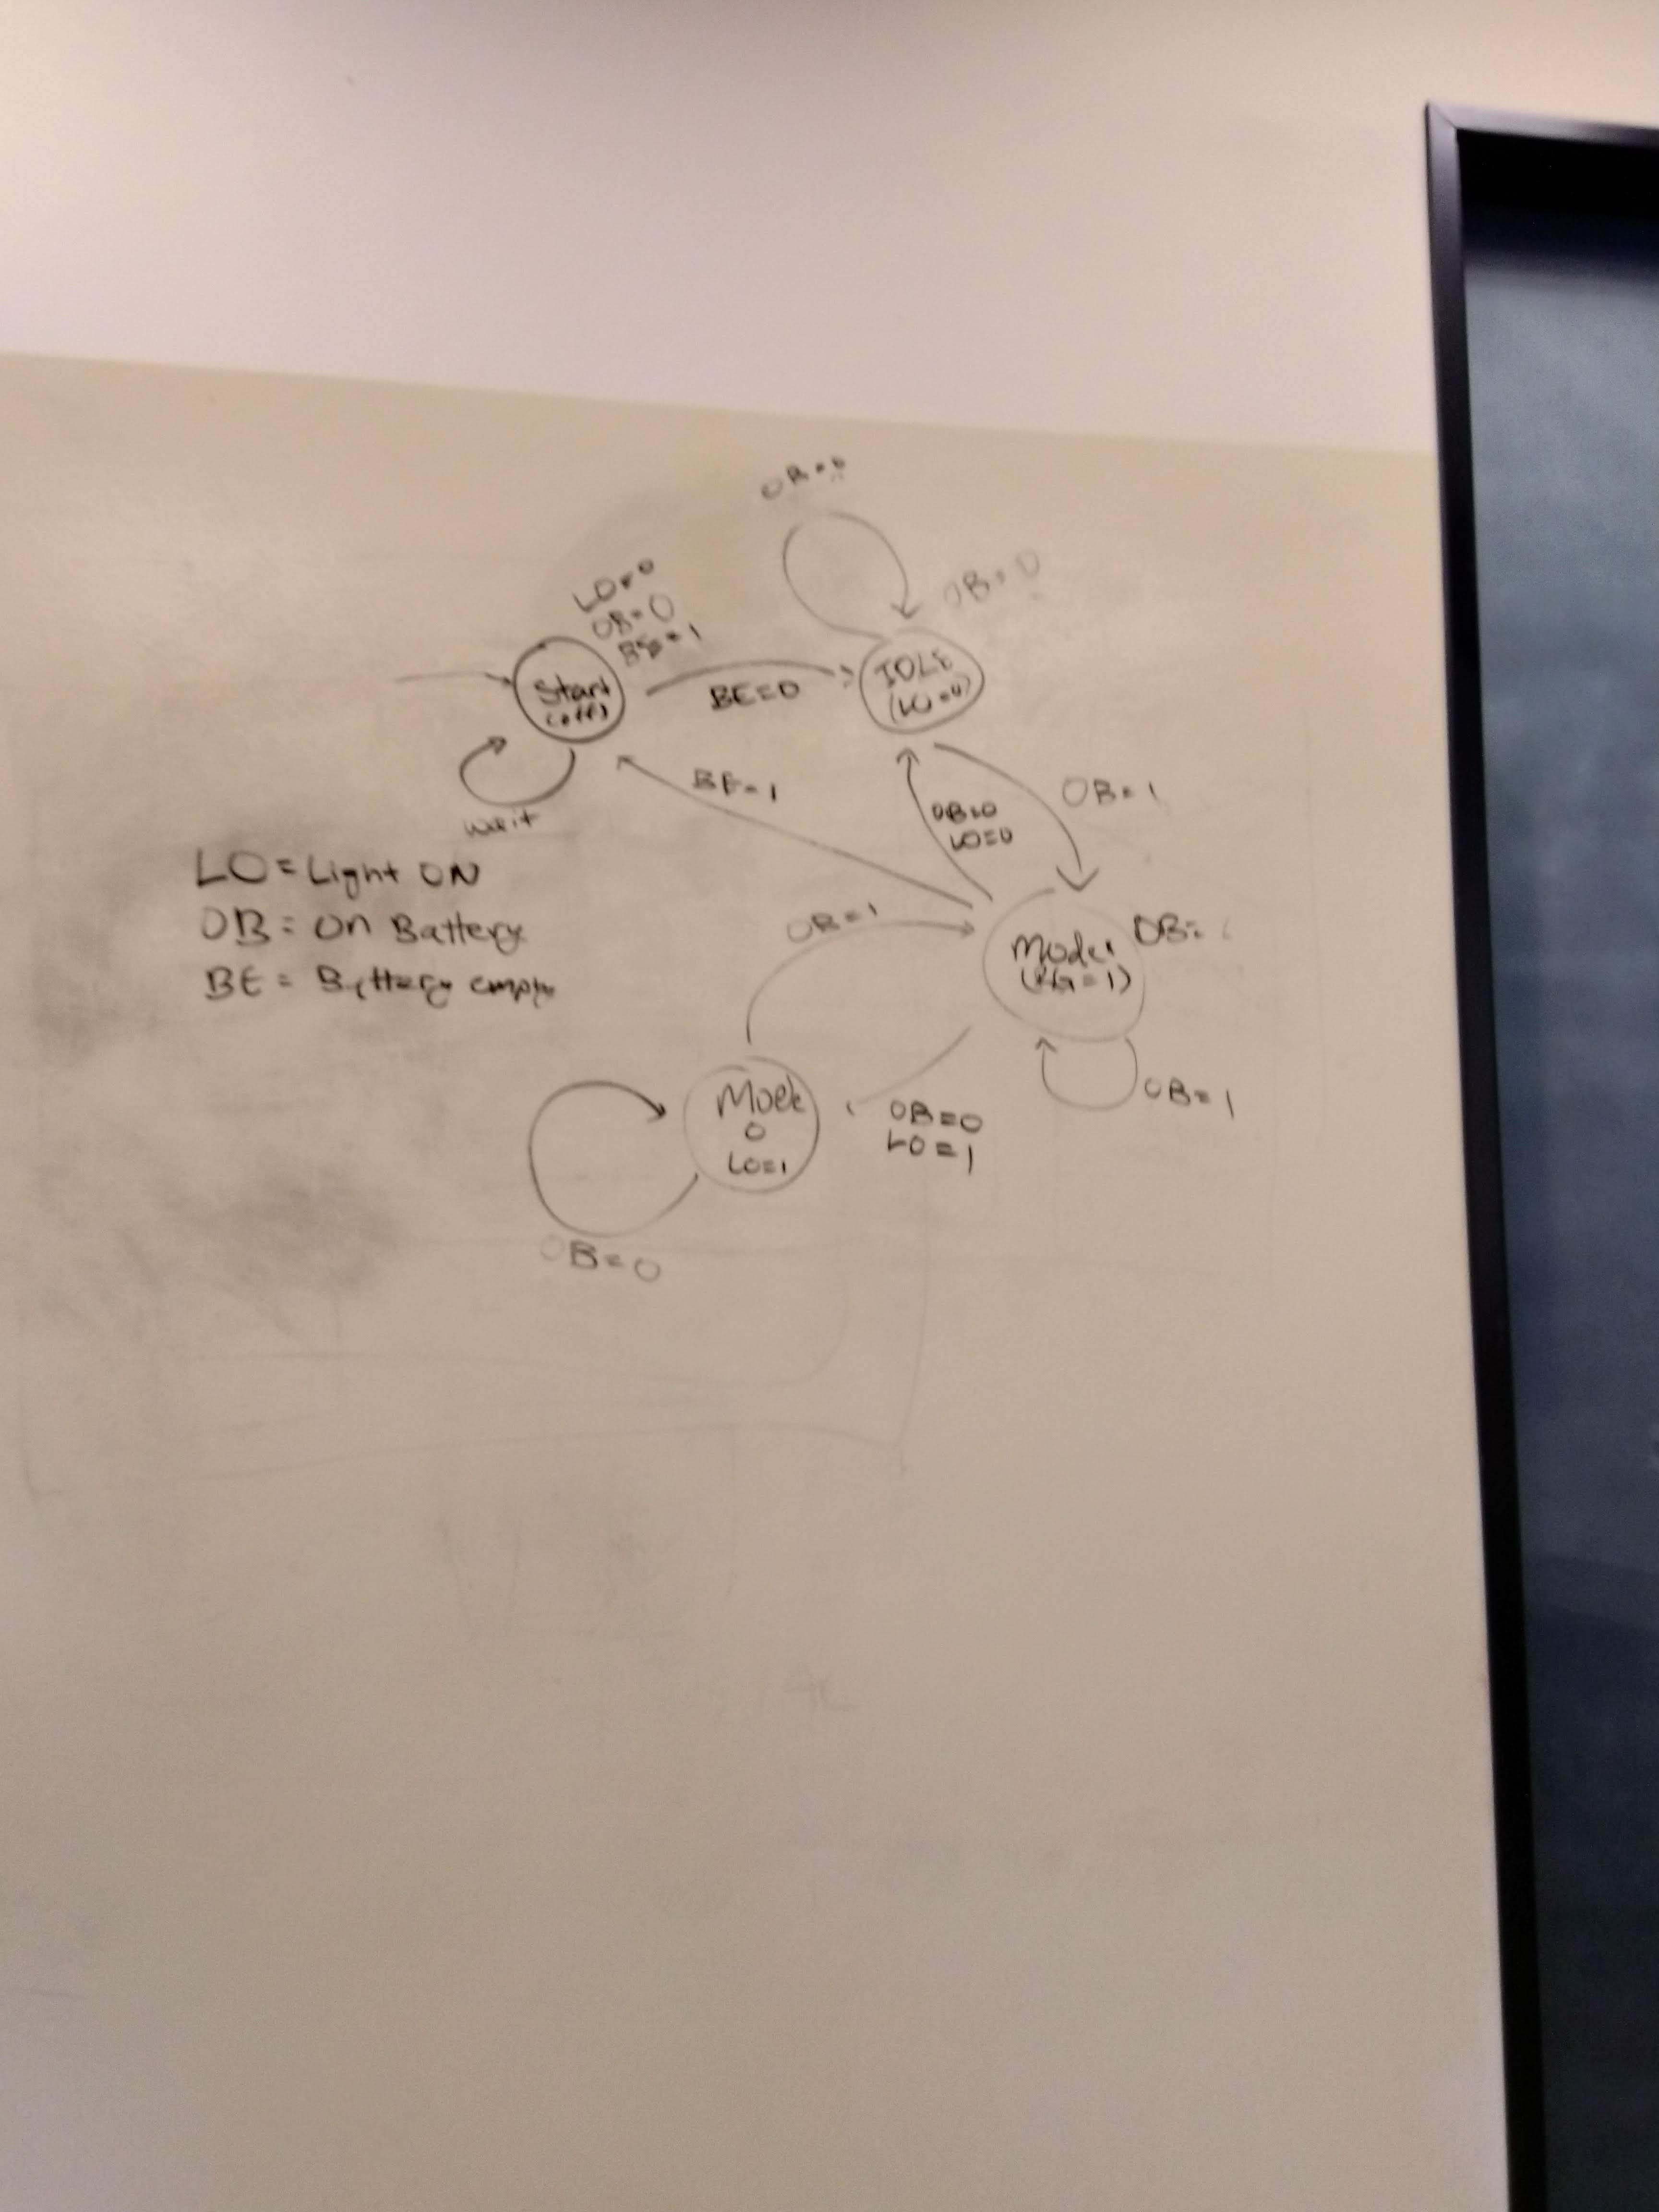 OB=0
LO=0
OB=0
OB=0
BE=1
Start
(off)
BE=0
IDLE
wait
BE=1
OB=0
LO=0
OB=1
LO=Light ON
OB=On Battery
BE=Battery empty
OB=1
OB=
Mode
0
LO=1
OB=0
LO=1
OB=1
OB=0